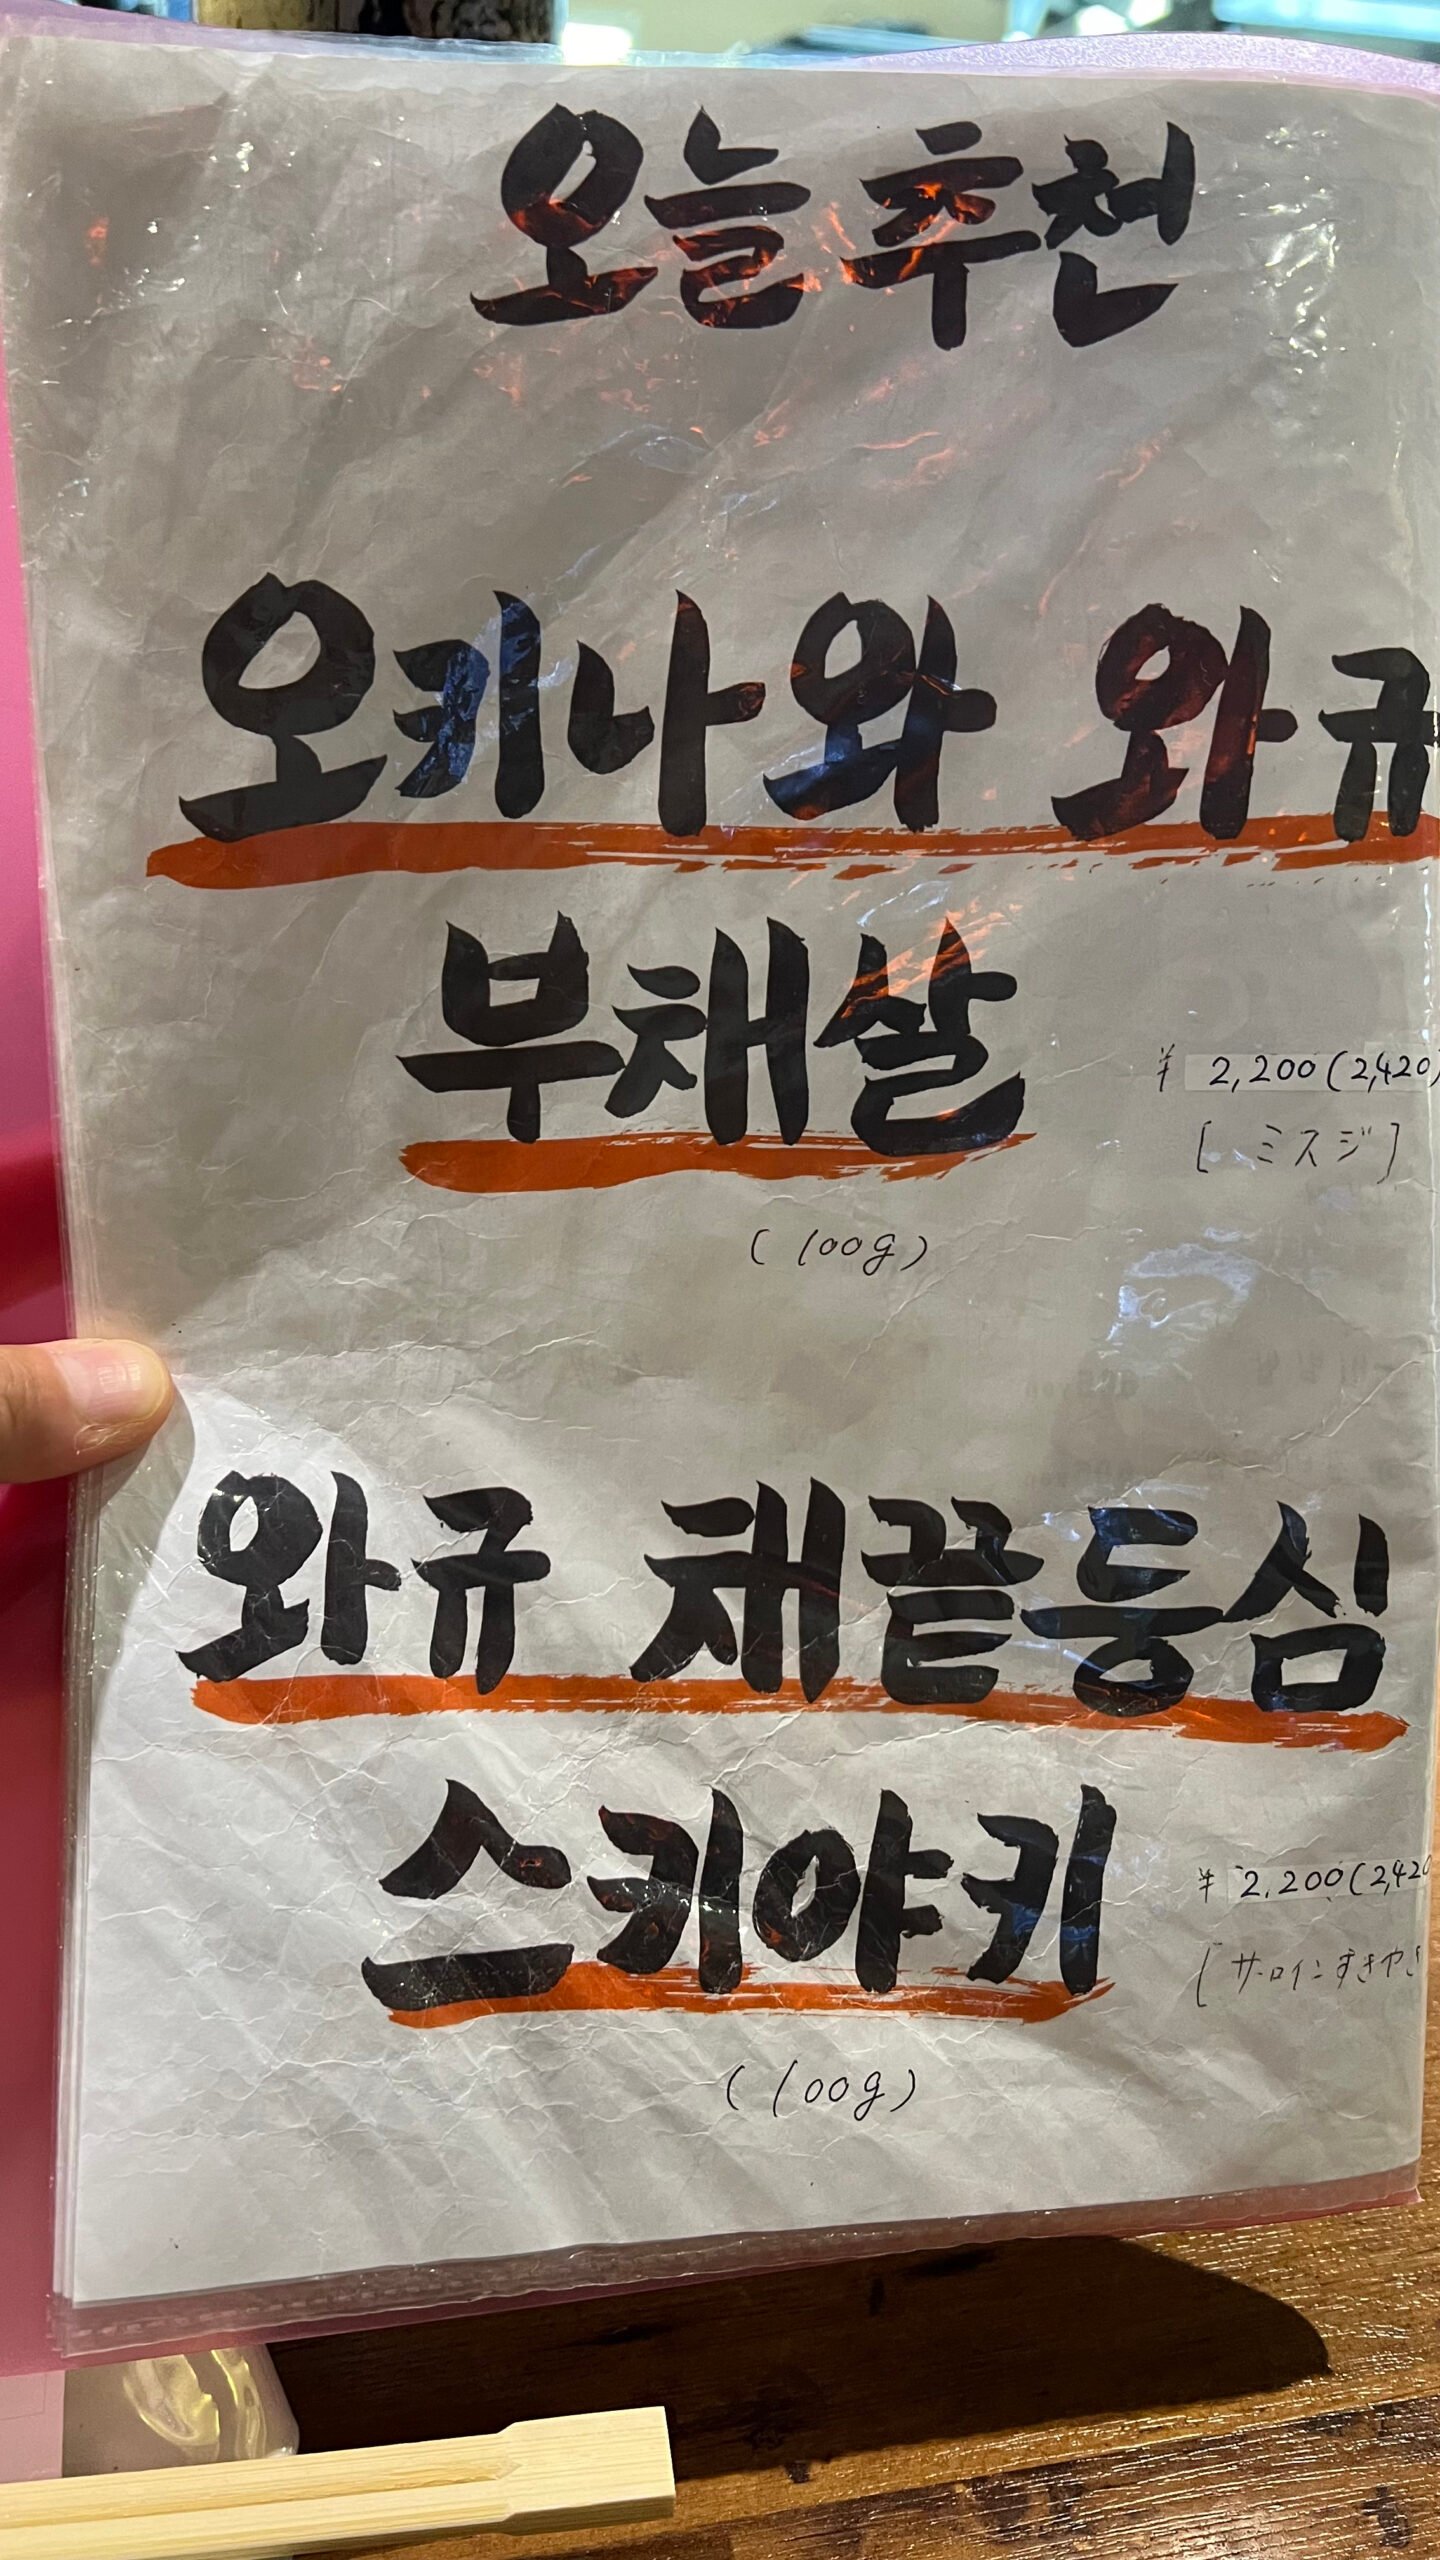 오늘 추천
오키나와 와규
부채살
¥ 2,200(2,420)
[ ミスジ]
(100g)
와규 채끝등심
스키야키
¥ 2.200(2,420
[サーロインすきやき
(100g)